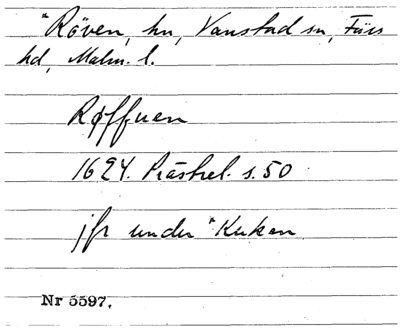 *Röven, hn, Vanstad sn, Färs
hd, Malm. l.
Røffuen
1624. Prästrel. s. 50
jfr under *Kuken
Nr 5597.